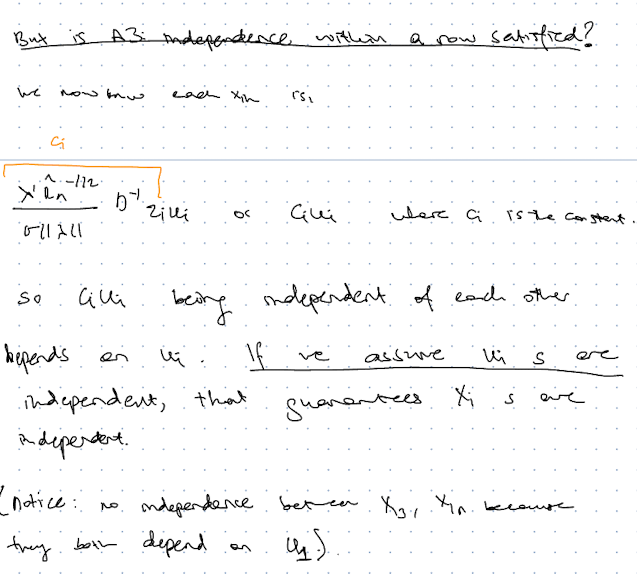 But is A3: independence within a row satisfied?
we now know each xin is,
ci
λ' R̂n^-1/2 / σ||λ|| D^-1 zi ui or ci ui where ci is the constant.
so ci ui being independent of each other
depends on ui. If we assume ui s are
independent, that guarantees Xi s are
independent.
(notice: no independence between X31 X1n because
they both depend on u1.)